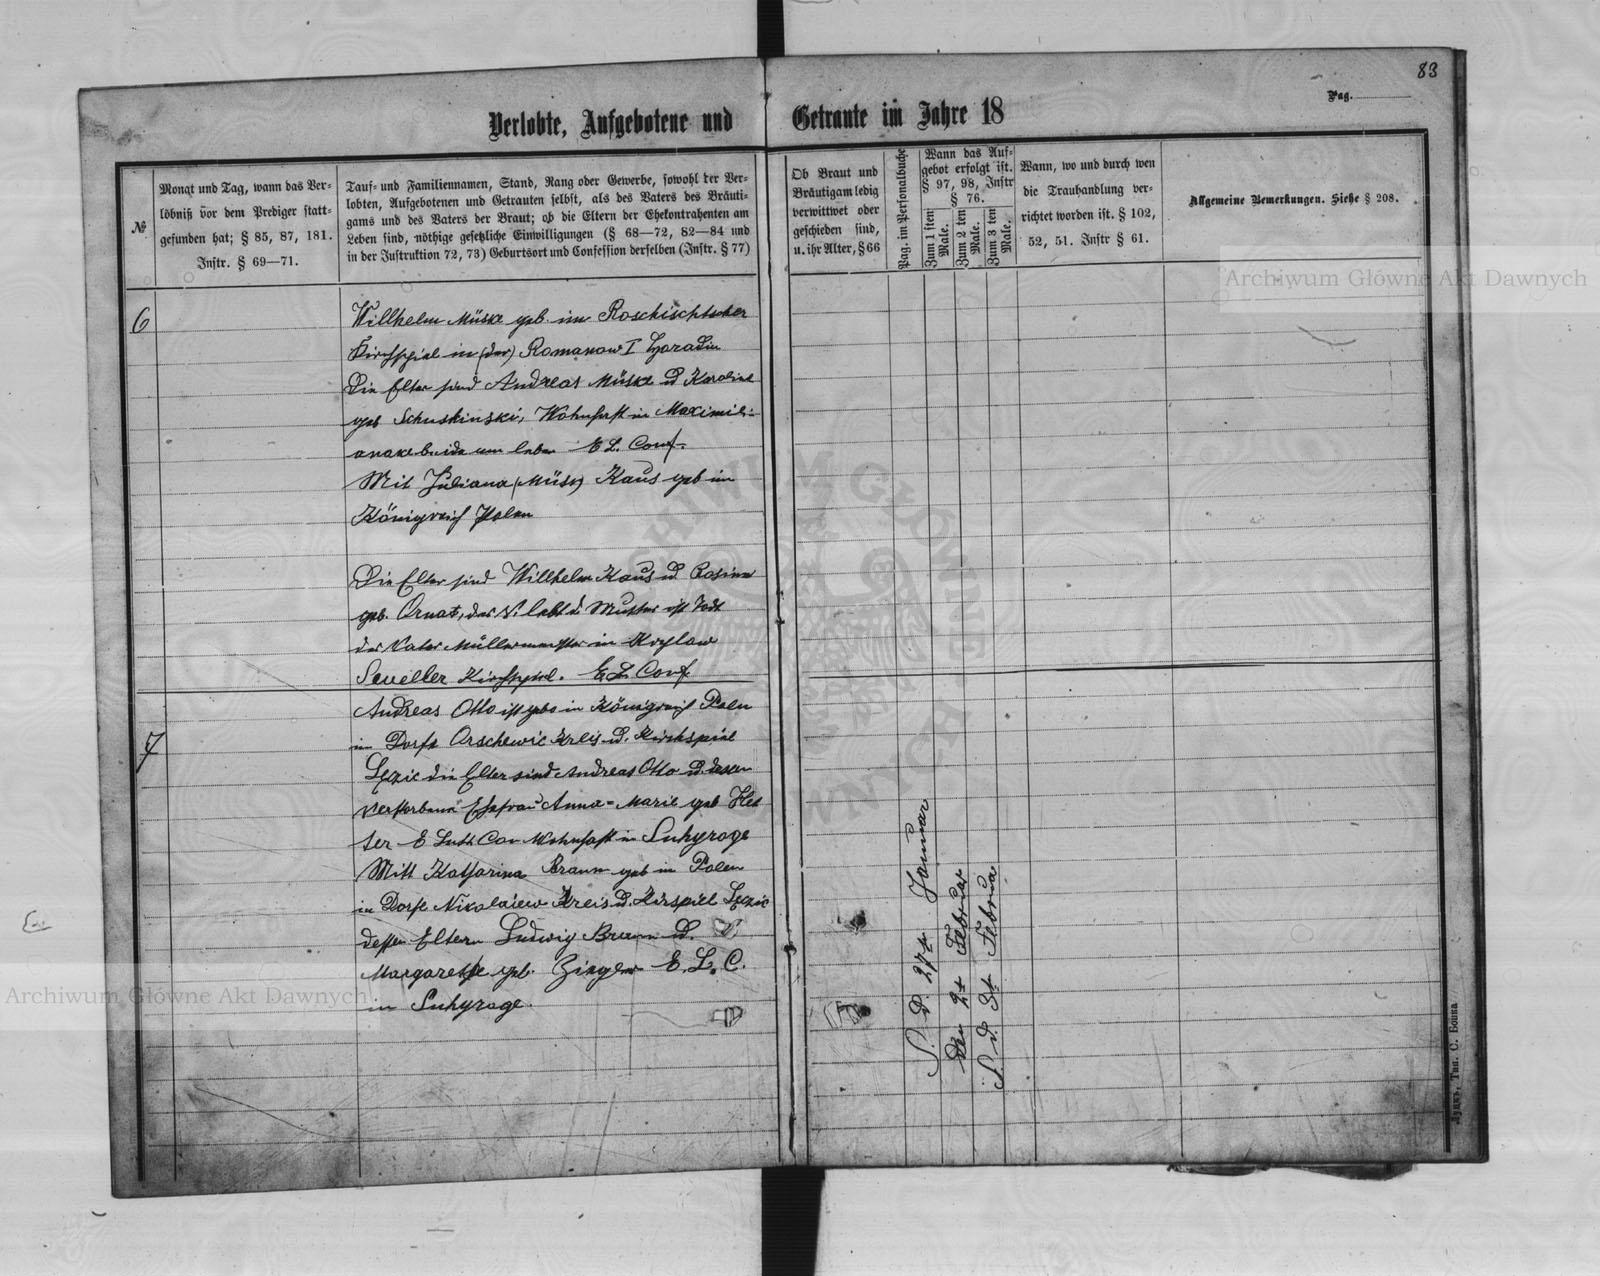 83
Pag.
Verlobte, Aufgebotene und Getraute im Jahre 18
№
Monat und Tag, wann das Ver-
löbniß vor dem Prediger statt-
gefunden hat; § 85, 87, 181.
Instr. § 69—71.
Tauf- und Familiennamen, Stand, Rang oder Gewerbe, sowohl der Ver-
lobten, Aufgebotenen und Getrauten selbst, als des Vaters des Bräuti-
gams und des Vaters der Braut; ob die Eltern der Ehekontrahenten am
Leben sind, nöthige gesetzliche Einwilligungen (§ 68—72, 82—84 und
in der Instruktion 72, 73) Geburtsort und Confession derselben (Instr. § 77)
Ob Braut und
Bräutigam ledig
verwittwet oder
geschieden sind,
u. ihr Alter, § 66
Pag. im Personalbuche
Wann das Auf-
gebot erfolgt ist.
§ 97, 98, Instr
§ 76.
Zum 1 ten
Male.
Zum 2 ten
Male.
Zum 3 ten
Male.
Wann, wo und durch wen
die Trauhandlung ver-
richtet worden ist. § 102,
52, 51. Instr § 61.
Allgemeine Bemerkungen. Siehe § 208.
6
Willhelm Müske geb. im Roschischtscher
Kirchspiel in (der) Romanow I
Die Elter sind Andreas Müske u Karoline
geb Schuskinski, Wohnhaft in Maximili-
beide am leben E L. Conf.
Mit Juliana (Müsk) Kaus geb im
Königreich Polen
Die Elter sind Willhelm Kaus u Rosina
geb. Ornat, der V. lebt u Mutter ist Todt
der Vater Müllermeister in Koylow
Kirchspiel. E L Conf
7
Andreas Otto ist gebo in Königreich Polen
im Dorfe Orschewic Kreis u. Kirchspiel
Lezic die Elter sind Andreas Otto u. dessen
verstorbene Ehefrau Anna-Marie geb Hel
ter E Luth Con Wohnhaft in Suhyroge
Mitt Katharina Braun geb in Polen
in Dorfe Nikolaiew Kreis u. Kirspiel Lezic
dessen Eltern Ludwig Braun u.
Margarethe geb. Zinger E. L. C.
in Suhyroge.
S. d. 27t Januar
den 2t Februar
S d. 3t Februar
Луцкъ, Тип. С. Бонка
Archiwum Główne Akt Dawnych
Archiwum Główne Akt Dawnych
ARCHIWUM GŁÓWNE AKT DAWNYCH